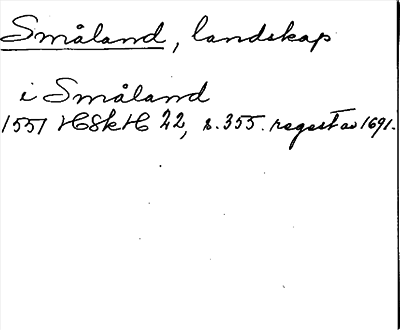 Småland, landskap
i Småland
1551 HSkH 22, s. 355. regest av 1691.